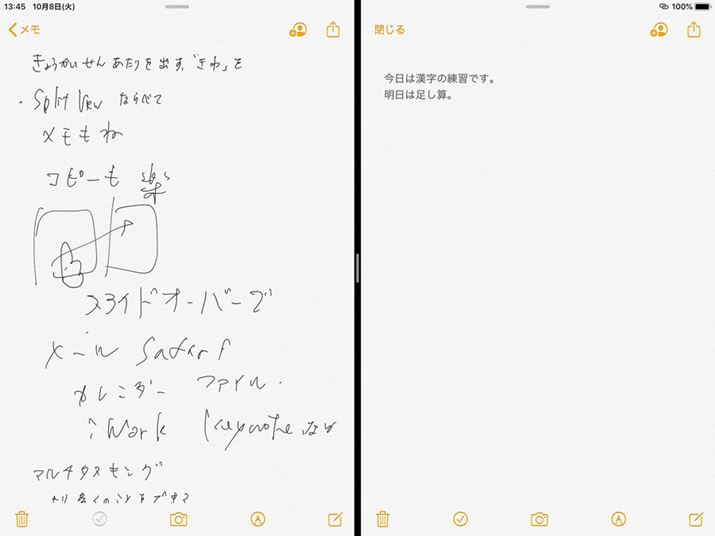 13:45 10月8日(火)
100%
メモ
きょうかいせんあたりを出す、「きわ」を
・Split View ならべて
メモもね
コピーも 楽
スライドオーバーで
メール Safari
カレンダー ファイル・
iWork (keynoteなど
マルチタスキング
より多くのことができる
閉じる
今日は漢字の練習です。
明日は足し算。